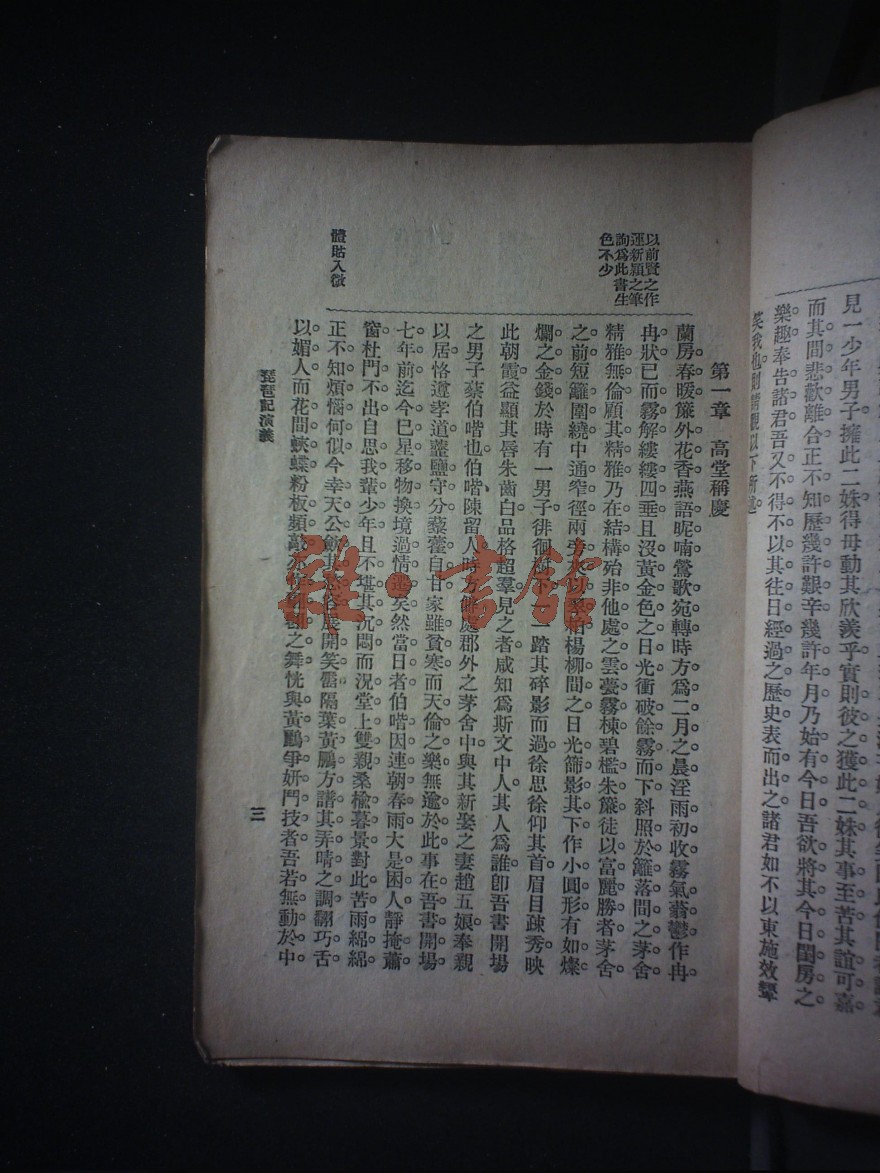 見一少年男子擁此二妹得毋動其欣羨乎實則彼之獲此二妹其事至苦其誼可嘉
而其間悲歡離合正不知歷幾許艱辛幾許年月乃始有今日吾欲將其今日閨房之
樂趣奉告諸君吾又不得不以其往日經過之歷史表而出之諸君如不以東施效顰
笑我也則請觀以下所述
第一章 高堂稱慶
以前賢之作
運新穎之筆
詢爲此書生
色不少
蘭房春暖簾外花香燕語呢喃鶯歌宛轉時方爲二月之晨淫雨初收霧氣蓊鬱作冉
冉狀已而霧解縷縷四垂且沒黃金色之日光衝破餘霧而下斜照於籬落間之茅舍
精雅無倫顧其精雅乃在結構殆非他處之雲甍霧棟碧檻朱簾徒以富麗勝者茅舍
之前短籬圍繞中通窄徑兩旁 柏楊柳間之日光篩影其下作小圓形有如燦
爛之金錢於時有一男子徘徊 下 一踏其碎影而過徐思徐仰其首眉目疎秀映
此朝霞益顯其唇朱齒白品格超羣見之者咸知爲斯文中人其人爲誰卽吾書開場
之男子蔡伯喈也伯喈陳留人時方 處郡外之茅舍中與其新娶之妻趙五娘奉親
以居恪遵孝道虀鹽守分藜藿自甘家雖貧寒而天倫之樂無逾於此事在吾書開場
七年前迄今巳星移物換境過情遷矣然當日者伯喈因連朝春雨大是困人靜掩蕭
窗杜門不出自思我輩少年且不堪其沉悶而況堂上雙親桑榆暮景對此苦雨綿綿
正不知煩惱何似今幸天公斂其 容展開笑靨隔葉黃鸝方譜其弄晴之調翻巧舌
體貼入微
以媚人而花間蛺蝶粉板頻敲亦 之舞恍與黃鸝爭妍鬥技者吾若無動於中
琵琶記演義
三
雜·書館